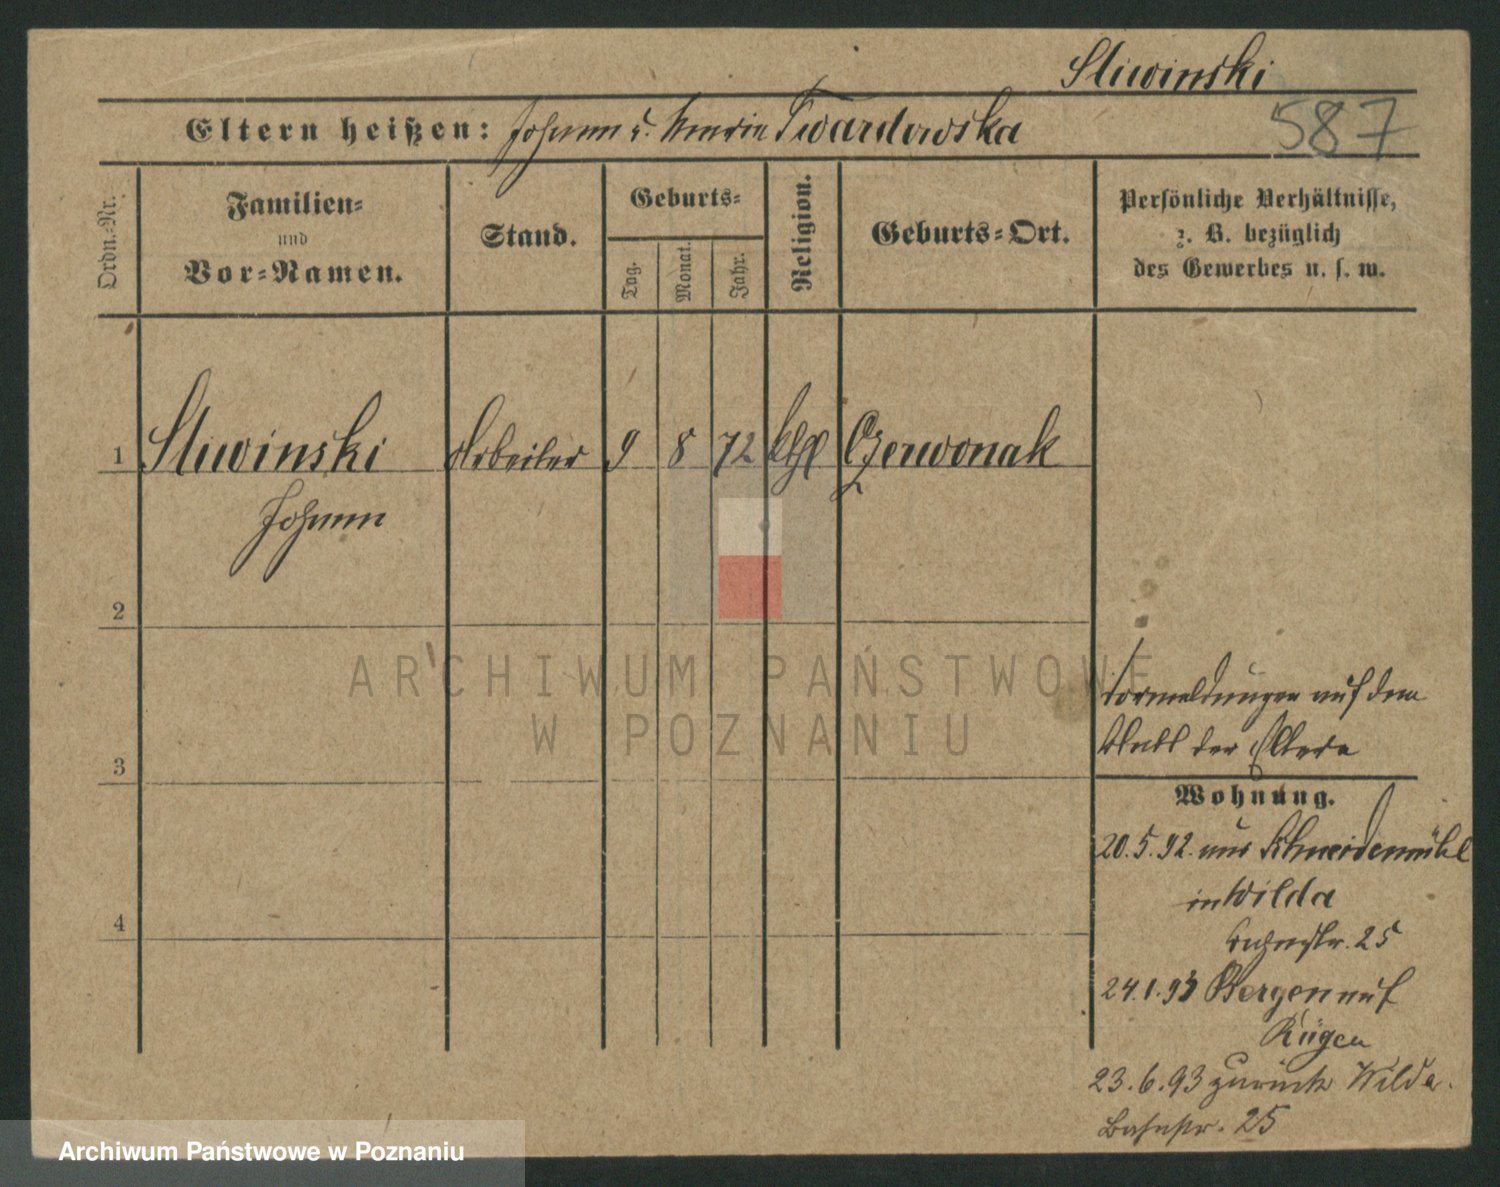 Sliwinski
587
Eltern heißen: Johann u. Maria Twardowska
Ordn.-Nr.
Familien-
und
Vor-Namen.
Stand.
Geburts-
Tag.
Monat.
Jahr.
Religion.
Geburts-Ort.
Persönliche Verhältnisse,
z. B. bezüglich
des Gewerbes u. s. w.
1 Sliwinski Arbeiter 9 8 72 kthl Czerwonak
Johann
2
3
4
Vormeldungen auf dem
Blatt der Eltern
Wohnung.
20.5.92. aus Schneidemühl
in Wilda
Bahnstr. 25
24.1.93 Bergen auf
Rügen
23.6.93 zurück Wilda.
Bahnstr. 25
ARCHIWUM PAŃSTWOWE
W POZNANIU
Archiwum Państwowe w Poznaniu